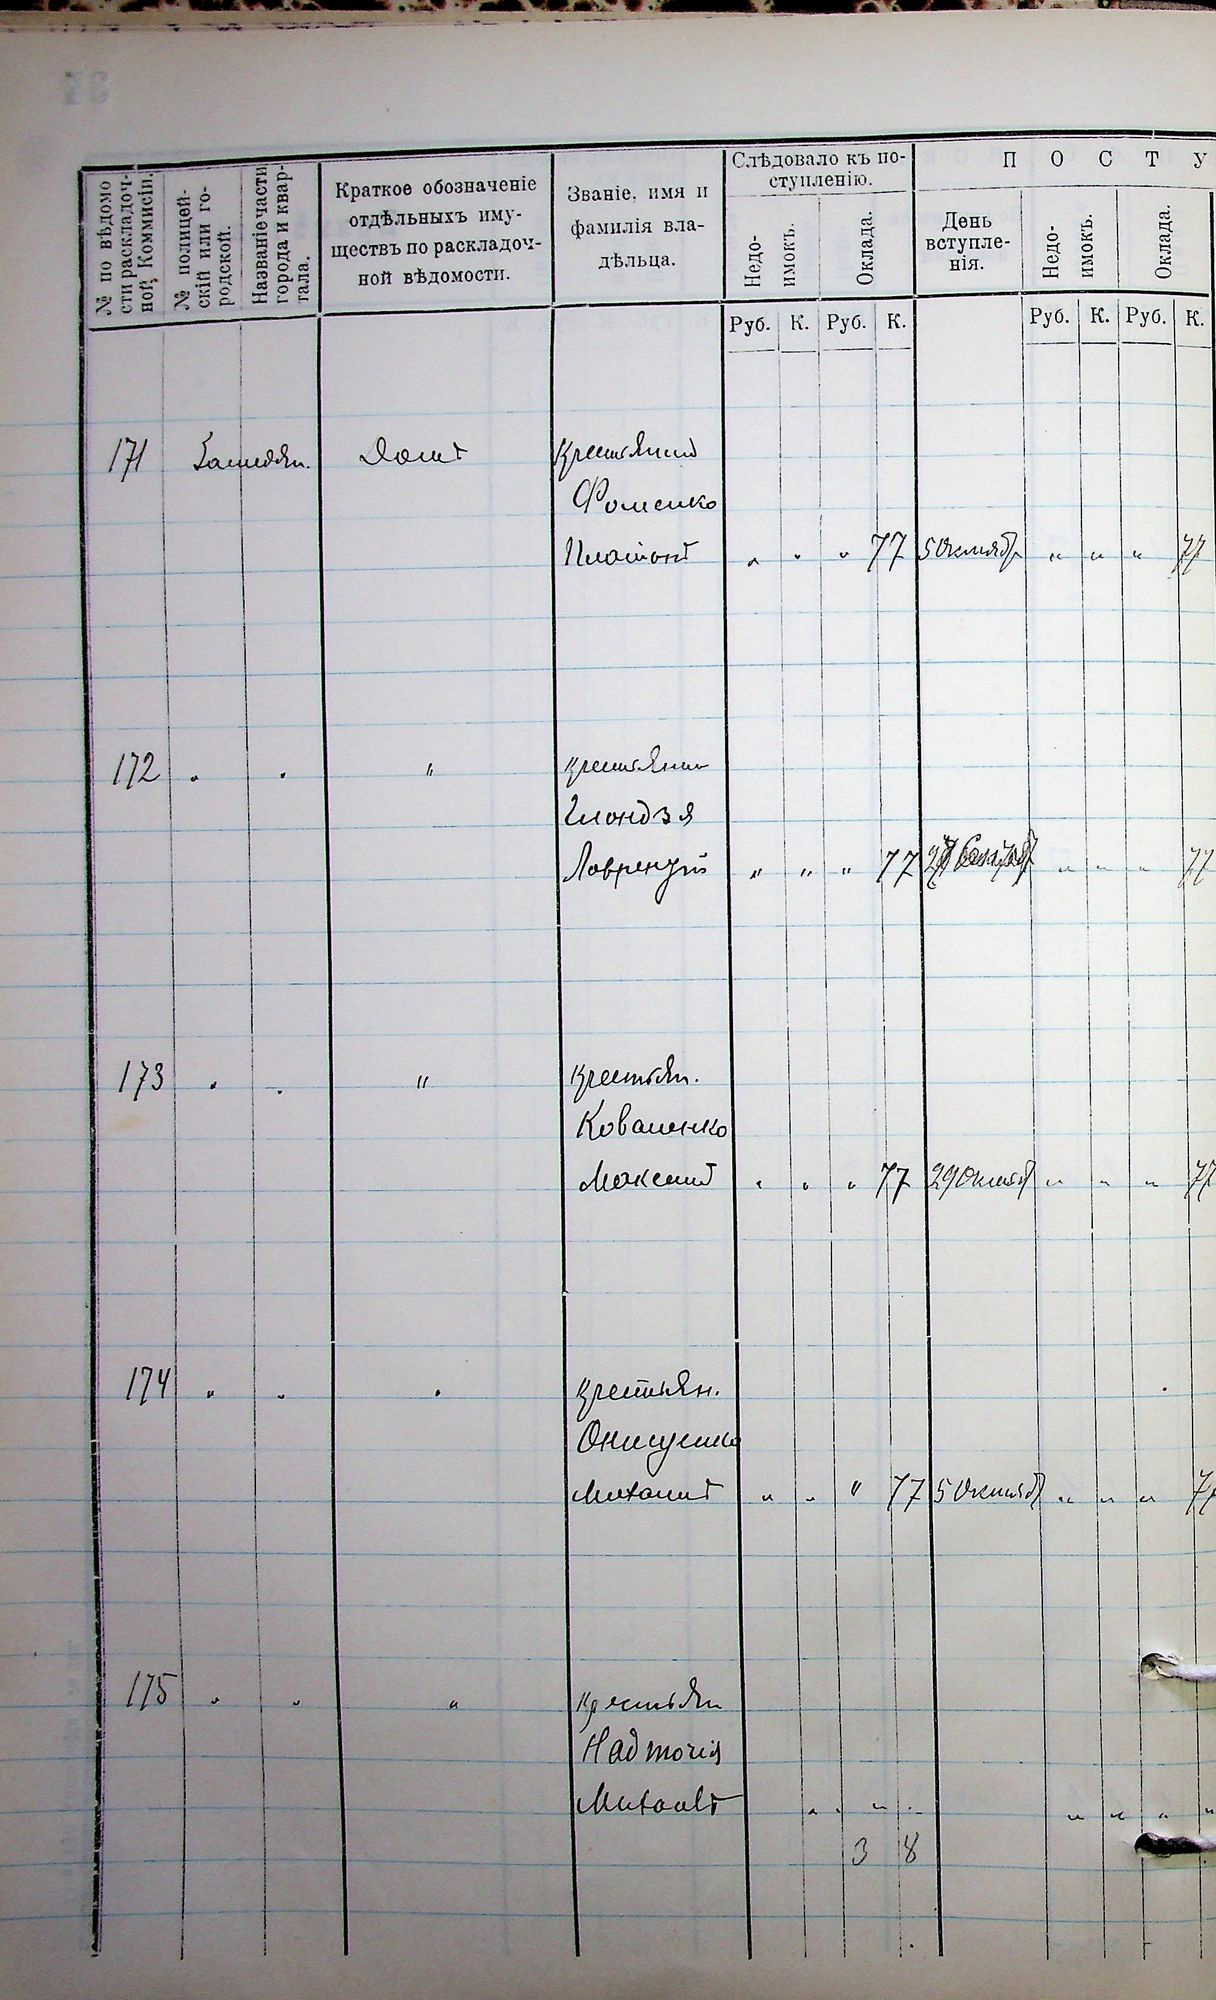 № по вѣдомо
сти раскладоч-
ной, Коммисіи.
№ полицей-
скій или го-
родской.
Названіе части
города и квар-
тала.
Краткое обозначеніе
отдѣльныхъ иму-
ществъ по раскладоч-
ной вѣдомости.
Званіе, имя и
фамилія вла-
дѣльца.
Слѣдовало къ по-
ступленію.
Недо-
имокъ.
Оклада.
П О С Т У
День
вступле-
нія.
Недо-
имокъ.
Оклада.
Руб. К. Руб. К. Руб. К. Руб. К.
171 Домъ Крестьянинъ
Фоменко
Платонъ „ „ „ 77 5 Октябр „ „ „ 77
172 „ „ „ Крестьянин
Глондзя
Лаврентій „ „ „ 77 „ „ „ 77
173 „ „ „ Крестьян.
Коваленко
Максимъ „ „ „ 77 29 Октяб „ „ „ 77
174 „ „ „ Крестьян.
Михаилъ „ „ „ 77 5 Октяб „ „ „ 77
175 „ „ „ Крестьян
Надточія
„ „ „ „ „ „ „ „
3 8